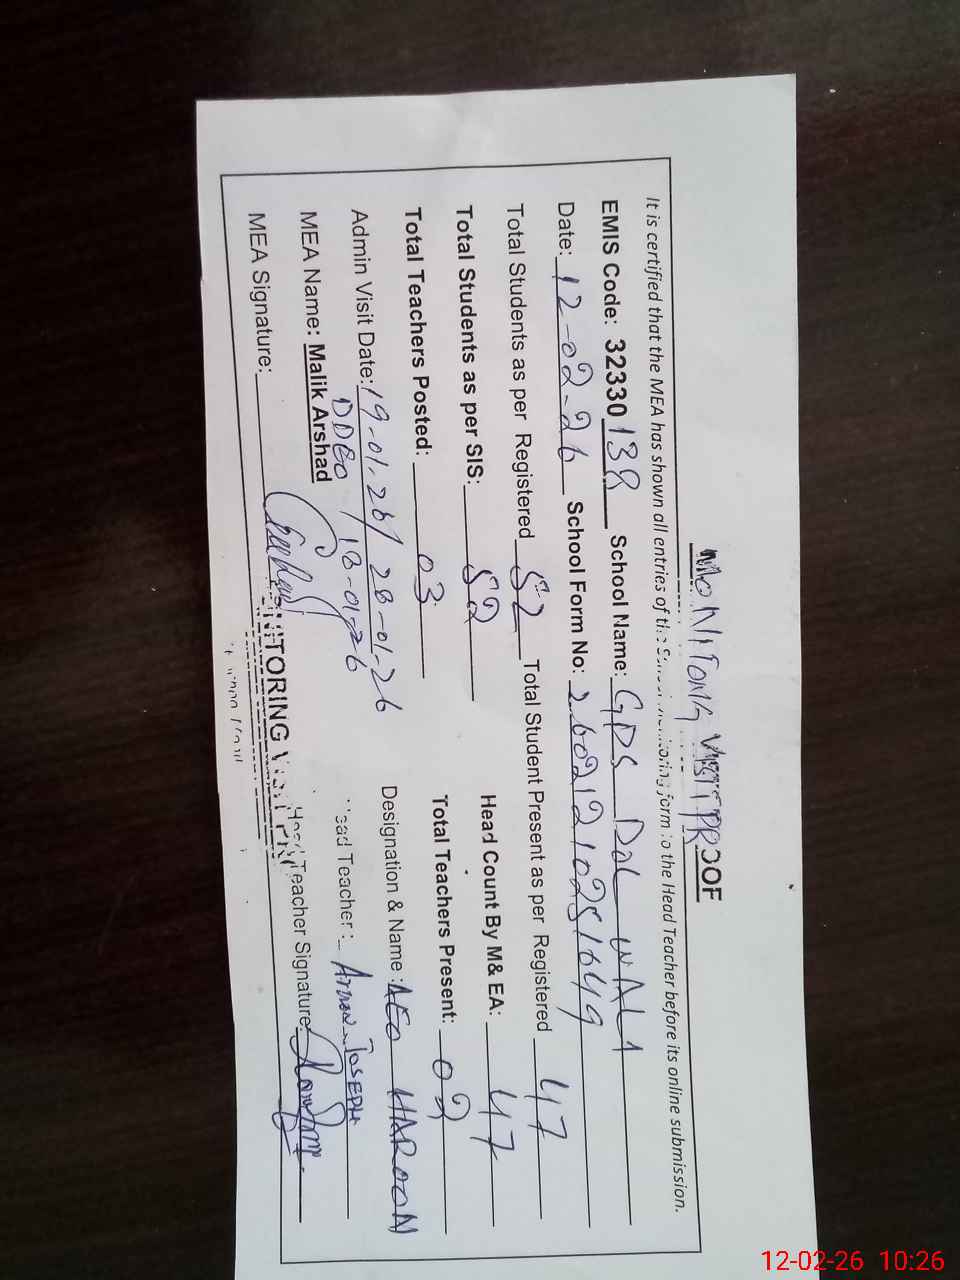 MONITORING VISIT PROOF
It is certified that the MEA has shown all entries of the School monitoring form to the Head Teacher before its online submission.
EMIS Code: 32330138 School Name: GPS Dal WALA
Date: 12-02-26 School Form No: 26021210251649
Total Students as per Registered 52 Total Student Present as per Registered 47
Total Students as per SIS: 52 Head Count By M& EA: 47
Total Teachers Posted: 03 Total Teachers Present: 02
Admin Visit Date: 19-01-26/ 28-01-26 Designation & Name: AEO HAROON
DDEO 18-01-26
MEA Name: Malik Arshad Head Teacher: JOSEPH
MEA Signature: Head Teacher Signature:
MONITORING VISIT
12-02-26 10:26